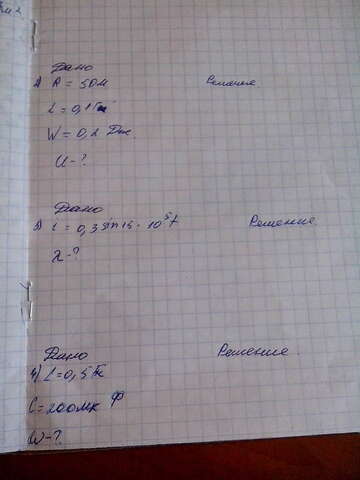 Дано
2) R = 5 Ом Решение
L = 0,1 Гн
W = 0,2 Дж
U - ?
Дано
3) i = 0,3 sin 15 · 10⁵ t Решение
λ - ?
Дано Решение
4) L = 0,5 Гн
C = 200 мк Ф
W - ?